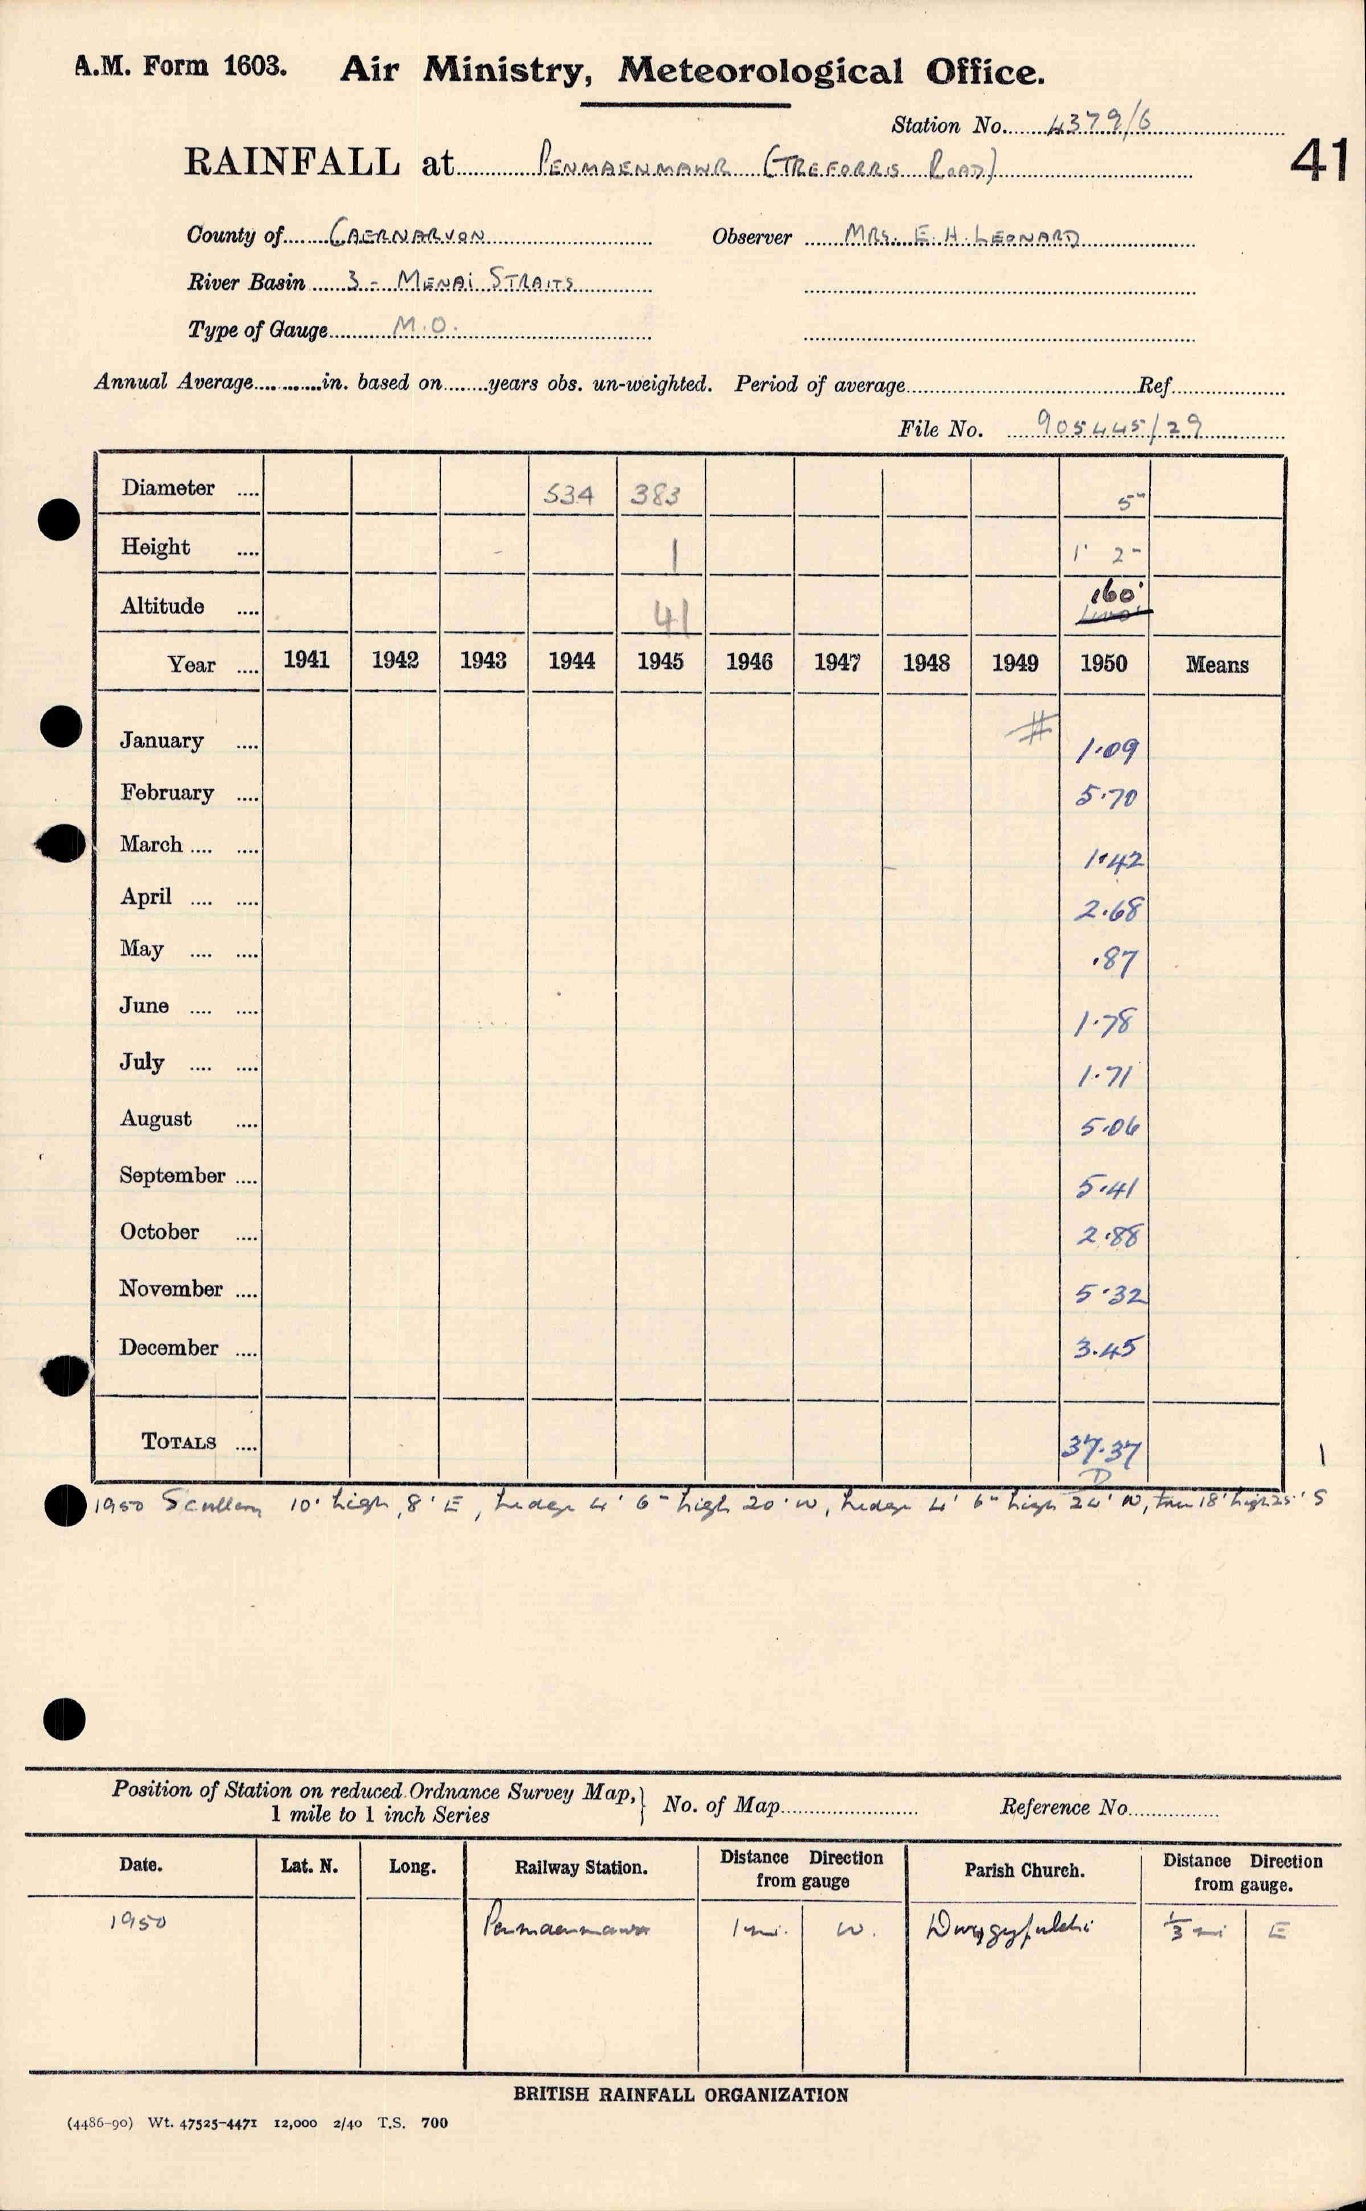 A.M. Form 1603. Air Ministry, Meteorological Office.
Station No. 4379/6
RAINFALL at PENMAENMAWR (TREFORRIS ROAD)
41
County of CAERNARVON Observer MRS. E. H. LEONARD
River Basin 3 - MENAI STRAITS
Type of Gauge M.O.
Annual Average in. based on years obs. un-weighted. Period of average Ref
File No. 905445/29
Diameter 534 383 5"
Height 1 1' 2"
Altitude 41 160'
Year 1941 1942 1943 1944 1945 1946 1947 1948 1949 1950 Means
January # 1.09
February 5.70
March 1.42
April 2.68
May .87
June 1.78
July 1.71
August 5.06
September 5.41
October 2.88
November 5.32
December 3.45
TOTALS 37.37 1
D
1950 10' high, 8' E, hedge 4' 6" high 20' W, hedge 4' 6" high 24' N, tree 18' high 25' S
Position of Station on reduced Ordnance Survey Map,} No. of Map Reference No.
1 mile to 1 inch Series
Date. Lat. N. Long. Railway Station. Distance Direction from gauge Parish Church. Distance Direction from gauge.
1950 Penmaenmawr 1 mi. W. Dwygyfylchi 1/3 mi E
BRITISH RAINFALL ORGANIZATION
(4486-90) Wt. 47525-4471 12,000 2/40 T.S. 700